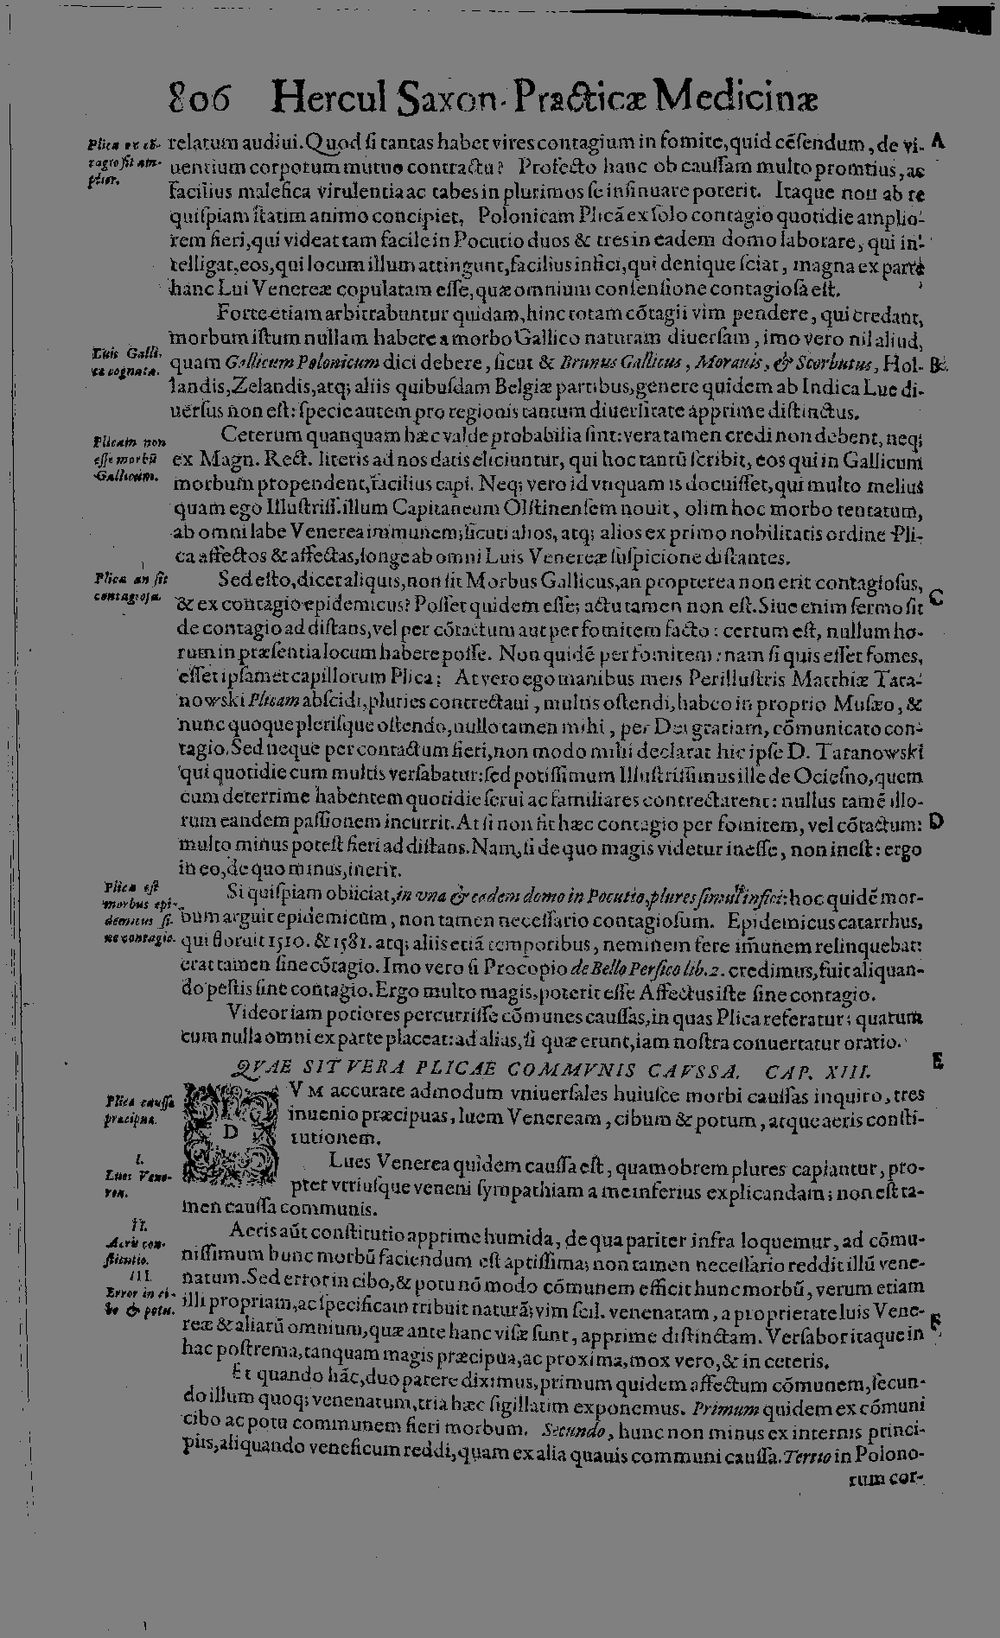 806 Hercul Saxon. Practicæ Medicinæ
Plica ex cō-
tagio fit am-
plior.
relatum audiui. Quod ſi tantas habet vires contagium in fomite, quid cēſendum, de vi- A
uentium corporum mutuo contractu? Profecto hanc ob cauſſam multo promtius, ac
facilius malefica virulentia ac tabes in plurimos ſe inſinuare poterit. Itaque non ab re
quiſpiam ſtatim animo concipiet, Polonicam Plicā ex ſolo contagio quotidie amplio-
rem fieri, qui videat tam facile in Pocutio duos & tres in eadem domo laborare, qui in-
telligat, eos, qui locum illum attingunt, facilius infici, qui denique ſciat, magna ex parte
hanc Lui Venereæ copulatam eſſe, quæ omnium conſenſione contagioſa eſt.
Forte etiam arbitrabuntur quidam, hinc totam cōtagii vim pendere, qui credant,
morbum iſtum nullam habere a morbo Gallico naturam diuerſam, imo vero nil aliud,
Luis Galli-
cæ cognata.
quam Gallicum Polonicum dici debere, ſicut & Brunus Gallicus, Morauis, & Scorbutus, Hol- B
landis, Zelandis, atq; aliis quibuſdam Belgiæ partibus, genere quidem ab Indica Lue di-
uerſus non eſt: ſpecie autem pro regionis tantum diuerſitate apprime diſtinctus.
Plicam non
eſſe morbū
Gallicum.
Ceterum quanquam hæc valde probabilia ſint: vera tamen credi non debent, neq;
ex Magn. Rect. literis ad nos datis eliciuntur, qui hoc tantū ſcribit, eos qui in Gallicum
morbum propendent, facilius capi. Neq; vero id vnquam is docuiſſet, qui multo melius
quam ego Illuſtriſſ. illum Capitaneum Olſtinenſem nouit, olim hoc morbo tentatum,
ab omni labe Venerea immunem; ſicuti alios, atq; alios ex primo nobilitatis ordine Pli-
ca affectos & affectas, longe ab omni Luis Venereæ ſuſpicione diſtantes.
Plica an ſit
contagioſa.
Sed eſto, dicet aliquis, non ſit Morbus Gallicus, an propterea non erit contagioſus,
& ex contagio epidemicus? Poſſet quidem eſſe; actu tamen non eſt. Siue enim ſermo ſit C
de contagio ad diſtans, vel per cōtactum aut per fomitem facto: certum eſt, nullum ho-
rum in præſentia locum habere poſſe. Non quidē per fomitem: nam ſi quis eſſet fomes,
eſſet ipſamet capillorum Plica; At vero ego manibus meis Perilluſtris Matthiæ Tara-
nowski Plicam abſcidi, pluries contrectaui, multis oſtendi, habeo in proprio Muſæo, &
nunc quoque pleriſque oſtendo, nullo tamen mihi, per Dei gratiam, cōmunicato con-
tagio. Sed neque per contactum fieri, non modo mihi declarat hic ipſe D. Taranowski
qui quotidie cum multis verſabatur: ſed potiſſimum Illuſtriſſimus ille de Ocieſno, quem
cum deterrime habentem quotidie ſerui ac familiares contrectarent: nullus tamē illo-
rum eandem paſſionem incurrit. At ſi non fit hæc contagio per fomitem, vel cōtactum: D
multo minus poteſt fieri ad diſtans. Nam, ſi de quo magis videtur ineſſe, non ineſt: ergo
in eo, de quo minus, inerit.
Plica eſt
morbus epi-
demicus ſi-
ne contagio.
Si quiſpiam obiiciat, in vna & eadem domo in Pocutio, plures ſimul infici: hoc quidē mor-
bum arguit epidemicum, non tamen neceſſario contagioſum. Epidemicus catarrhus,
qui floruit 1510. & 1581. atq; aliis etiā temporibus, neminem fere im̄unem relinquebat:
erat tamen ſine cōtagio. Imo vero ſi Procopio de Bello Perſico lib. 2. credimus, fuit aliquan-
do peſtis ſine contagio. Ergo multo magis, poterit eſſe Affectus iſte ſine contagio.
Videor iam potiores percurriſſe cōmunes cauſſas, in quas Plica referatur; quarum
cum nulla omni ex parte placeat: ad alias, ſi quæ erunt, iam noſtra conuertatur oratio.
QVAE SIT VERA PLICAE COMMVNIS CAVSSA. CAP. XIII. E
Plicæ cauſſa
præcipua.
DVM accurate admodum vniuerſales huiuſce morbi cauſſas inquiro, tres
inuenio præcipuas, luem Veneream, cibum & potum, atque aeris conſti-
tutionem.
I.
Lues Vene-
rea.
Lues Venerea quidem cauſſa eſt, quamobrem plures capiantur, pro-
pter vtriuſque veneni ſympathiam a me inferius explicandam; non eſt ta-
men cauſſa communis.
II.
Aeris con-
ſtitutio.
Aeris aūt conſtitutio apprime humida, de qua pariter infra loquemur, ad cōmu-
niſſimum hunc morbū faciendum eſt aptiſſima; non tamen neceſſario reddit illū vene-
III.
Error in ci-
bo & potu.
natum. Sed error in cibo, & potu nō modo cōmunem efficit hunc morbū, verum etiam
illi propriam, ac ſpecificam tribuit naturā; vim ſcil. venenatam, a proprietate luis Vene-
reæ & aliarū omnium, quæ ante hanc viſæ ſunt, apprime diſtinctam. Verſabor itaque in F
hac poſtrema, tanquam magis præcipua, ac proxima, mox vero, & in ceteris.
Et quando hāc, duo parere diximus, primum quidem affectum cōmunem, ſecun-
do illum quoq; venenatum, tria hæc ſigillatim exponemus. Primum quidem ex cōmuni
cibo ac potu communem fieri morbum. Secundo, hunc non minus ex internis princi-
piis, aliquando veneficum reddi, quam ex alia quauis communi cauſſa. Tertio in Polono-
rum cor-